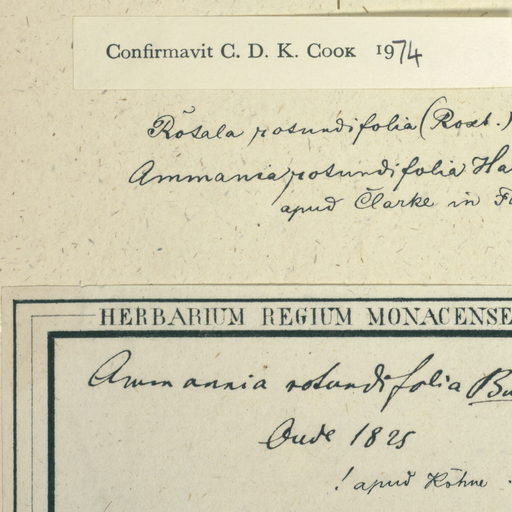 Confirmavit C. D. K. Cook 1974
Rotala rotundifolia (Roxb.)
Ammania rotundifolia Ha
apud Clarke in F
HERBARIUM REGIUM MONACENSE
Ammannia rotundifolia Bu
Oude 1825
! apud Köhne